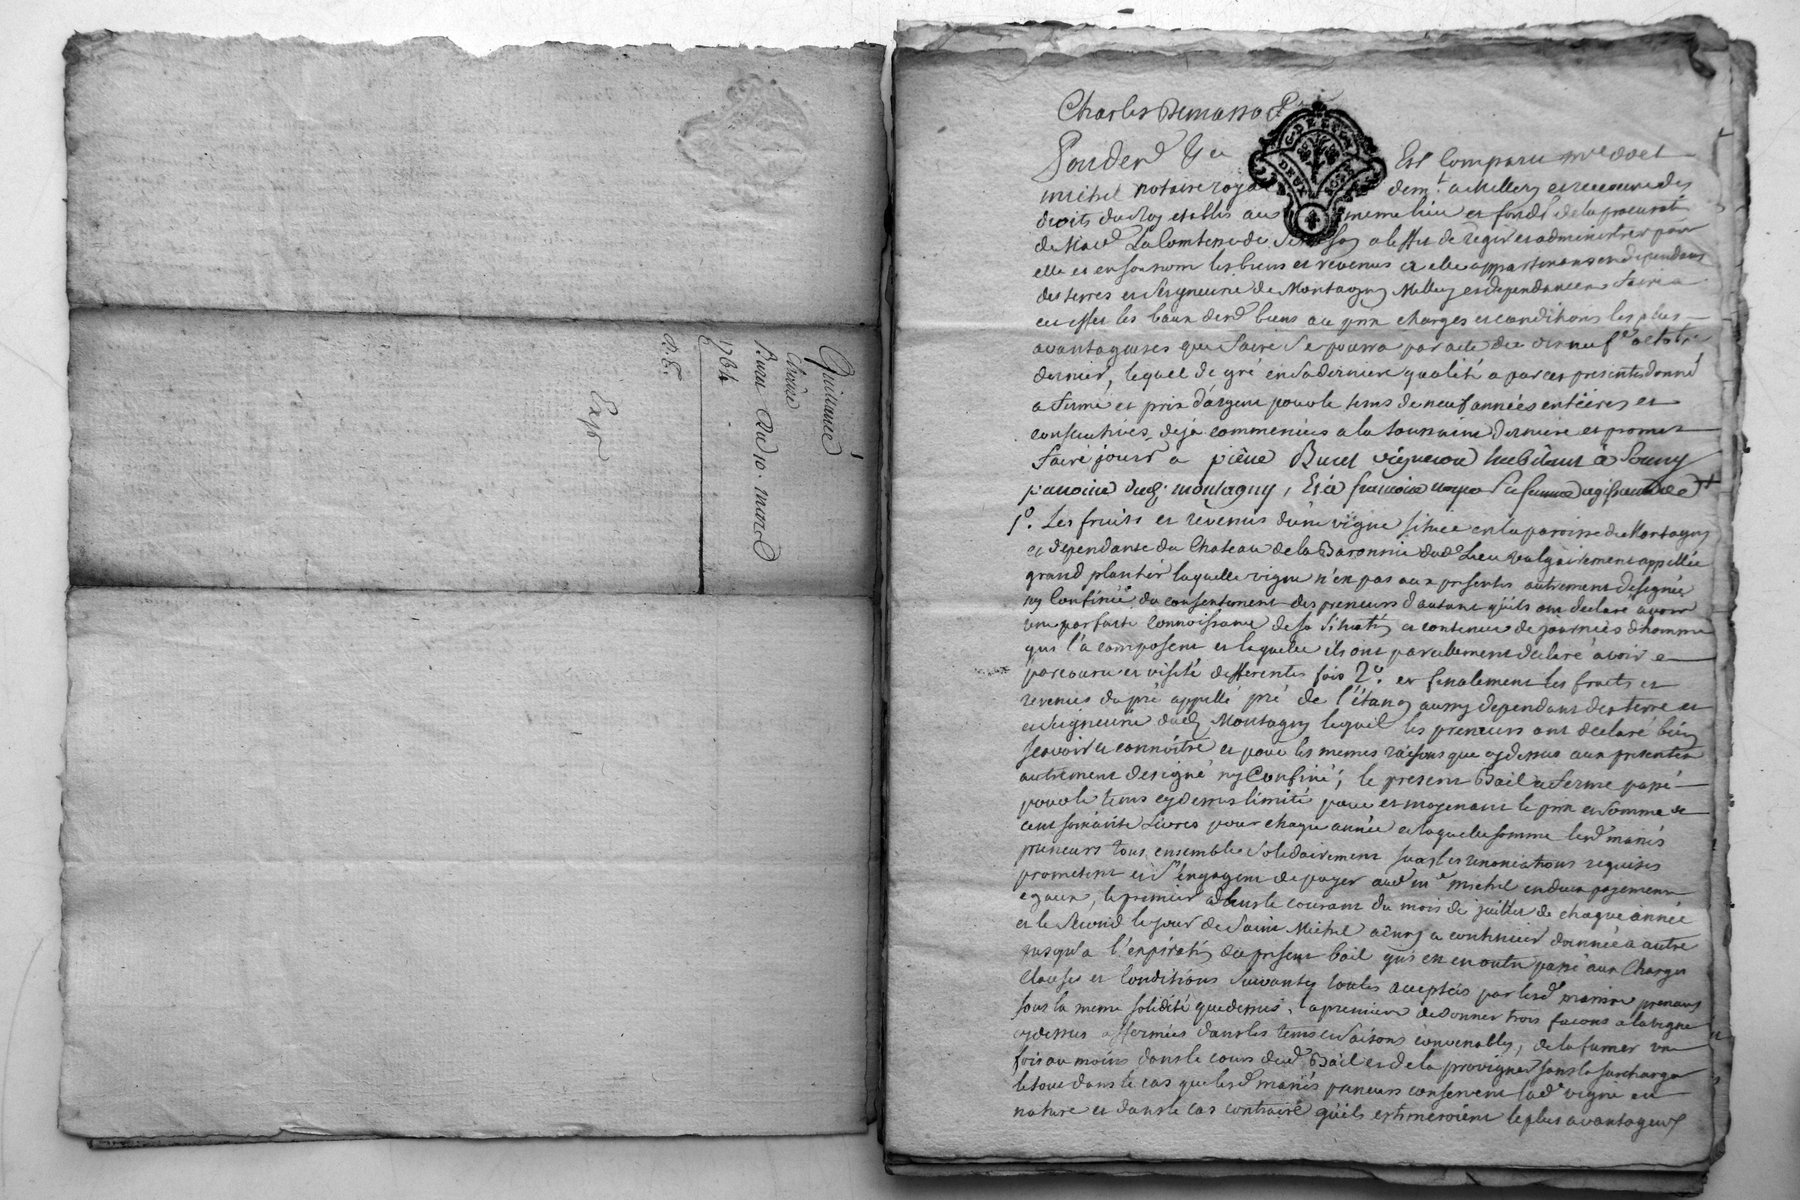 Quittance
Buret Du 10. mars
1784
Exp.
Charles Demasso
Est Comparu me
michel notaire royal demt. a Millery et receveur des
droits du Roy etablis au meme lieu et fondé de la procurati
de Mad. La Comtesse de a leffet de regir et administrer pour
elle et en son nom les biens et revenus a elle appartenans et dependans
des terres et Seigneurie de Montagny Millery et dependances faire a
cet effet les baux desd. biens au prix charges et conditions les plus
avantageuses que faire Se pourra par acte du dix neuf
dernier, lequel de gré en sa derniere qualité a par ces presentes donné
a ferme et prix d'argent pour le tems de neuf années entieres et
consecutives, deja commencées a la toussaint derniere et promet
faire jouir a pierre Buret vigneron habitant a Sourzy
paroisse dud. montagny, Et a françoise sa femme
1°. Les fruits et revenus d'une vigne située en la paroisse de Montagny
et dependante du Chateau de la Baronnie dud. Lieu vulgairement appellée
grand plantier laquelle vigne n'est pas aux presentes autrement designée
ny Confinée du consentement des preneurs d'autant qu'ils ont declaré avoir
une parfaite connoissance de sa Situati et contenue de journées d'homme
qui l'a composent et laquelle ils ont pareillement declaré avoir
parcouru et visité differentes fois 2°. et finalement les fruits et
revenus du pré appellé pré de l'étang aussy dependant des terre et
Seigneurie dud. Montagny lequel les preneurs ont declaré bien
sçavoir et connoître et pour les memes raisons que cydessus aux presentes
autrement designé ny Confiné; le present Bail a ferme passé
pour le tems cydessus limité pour et moyenant le prix et Somme de
cent soixante Livres pour chaque année et laquelle somme lesd. mariés
preneurs tous ensemble Solidairement sous les renonciations requises
promettent et s'engagent de payer aud. me michel en deux payements
egaux, le premier dans le courant du mois de juillet de chaque année
et le Second le jour de Saint Michel a continuer d'année a autre
jusqu'a l'expirati du present bail qui est en outre passé aux Charges
Clauses et Conditions Suivantes toutes acceptées par lesd. mariés preneurs
sous la meme solidité que dessus, la premiere de donner trois façons a la vigne
cydessus affermée dans les tems et Saisons convenables, de la fumer une
fois au moins dans le cours dud. Bail et de la provigner sans la surcharger
le tout dans le cas que lesd. mariés preneurs conservent lad. vigne en
nature et dans le cas contraire qu'ils estimeroient le plus avantageux